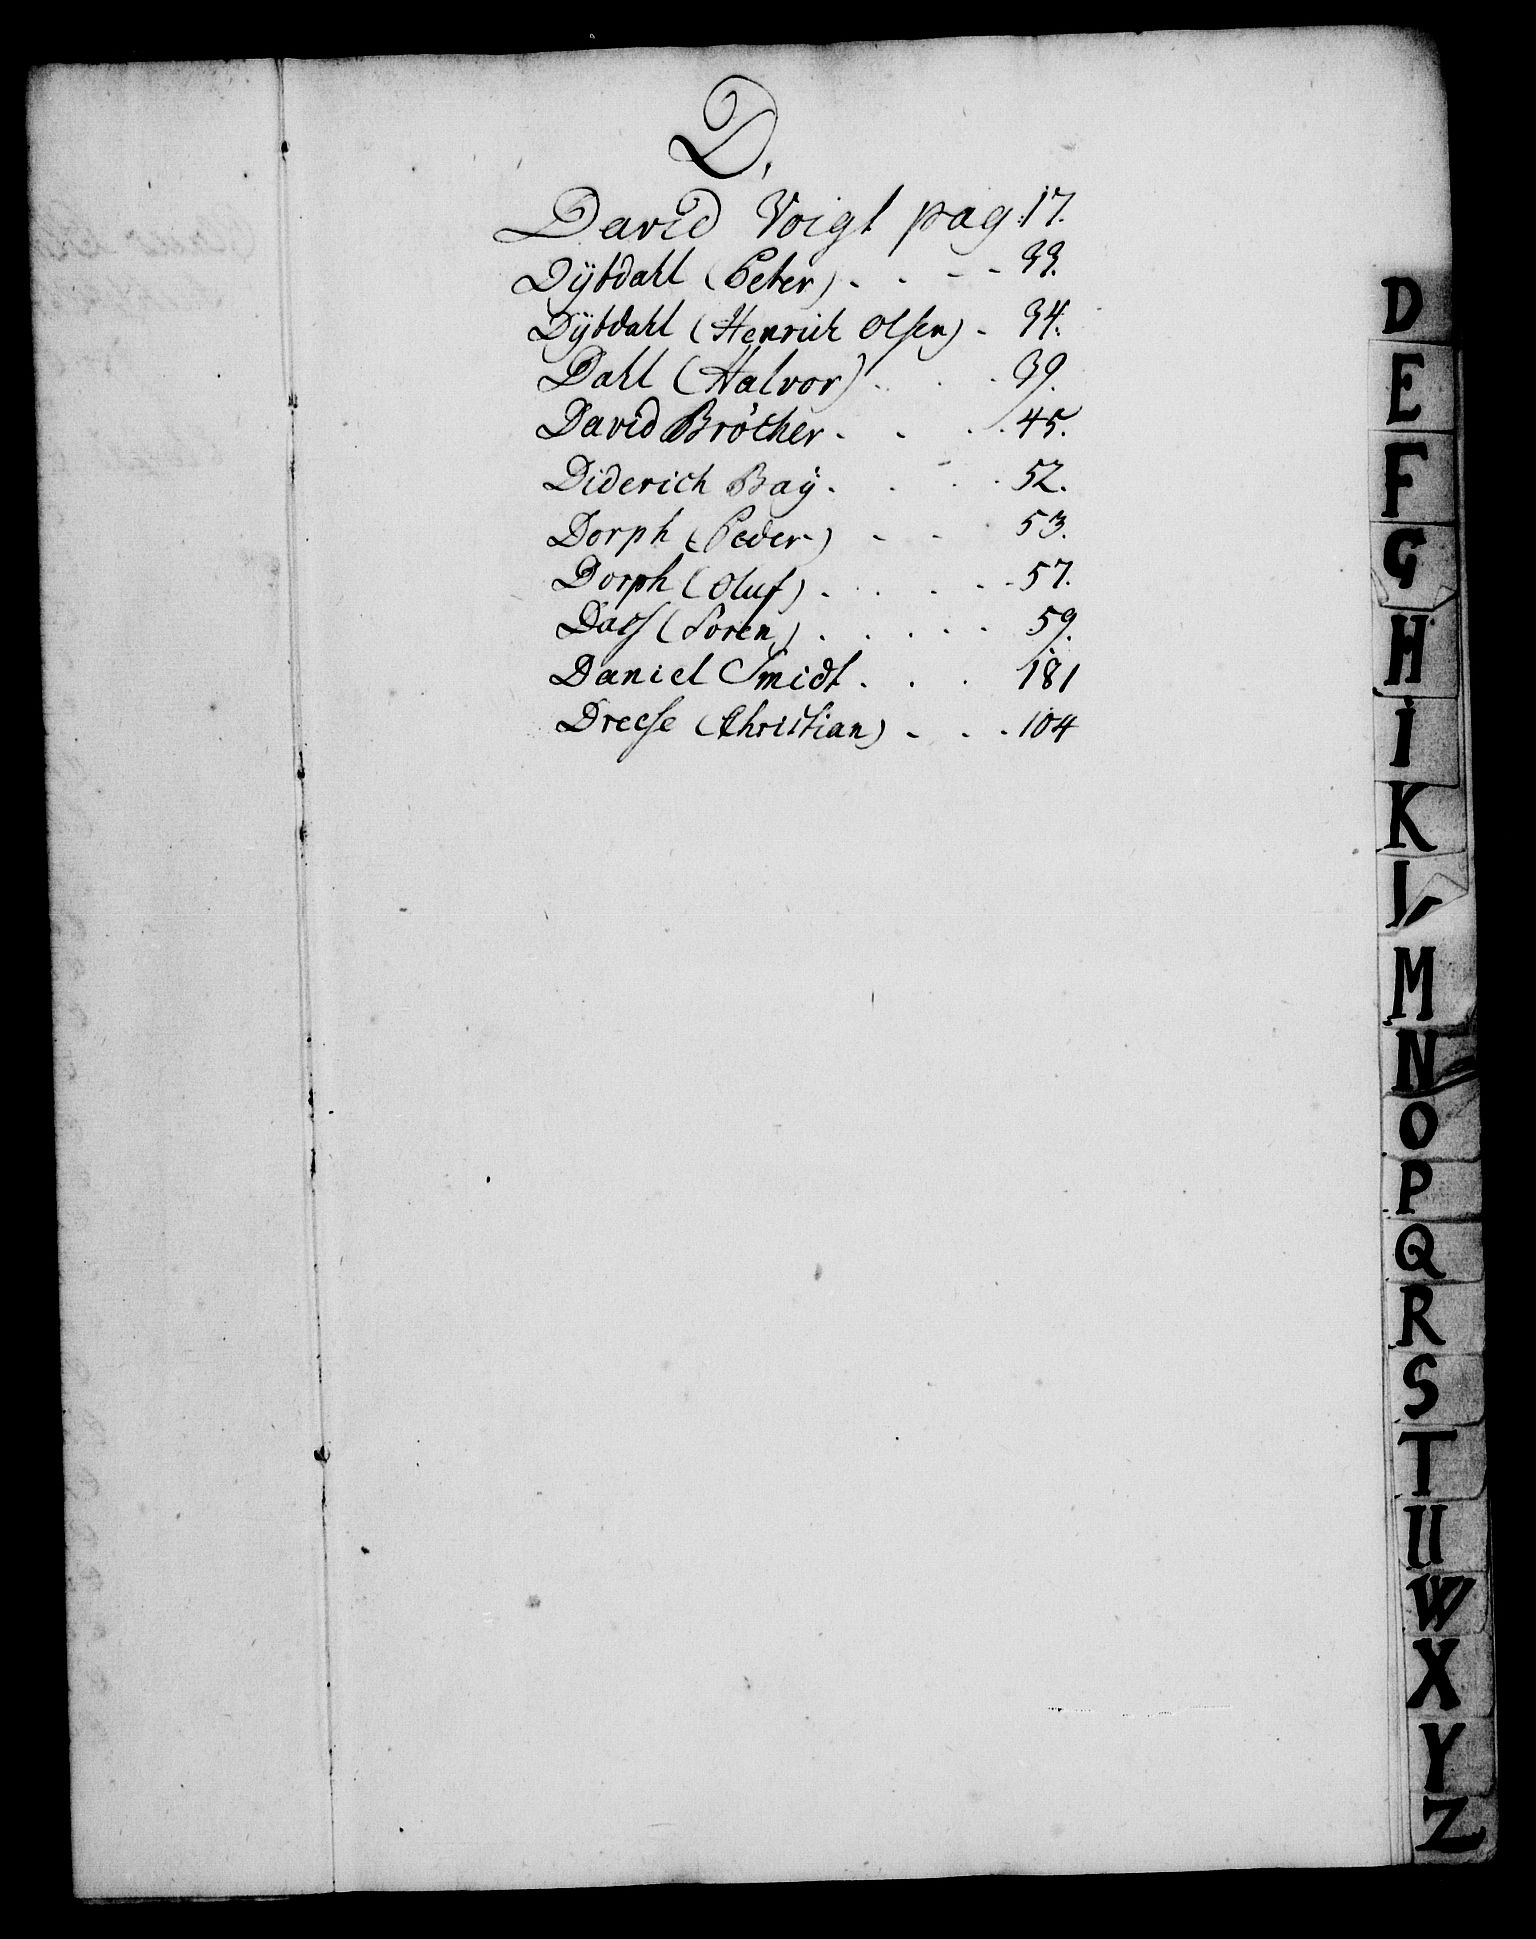 D.
David Voigt pag. 17.
Dÿbdahl (Peter) . . - - 33.
Dÿbdahl (Henrich Olsen) - 34.
Dall (Halvor) . . . 39.
David Bröcher . . . 45.
Diderich Baÿ . . . . 52.
Dorph (Peder) - - . 53.
Dorph (Oluf) . . . . - 57.
Dass (Soren) . . . . . 59.
Daniel Smidt . . . 181
Dreese (Christian) . . . 104
D
E
F
G
H
I
K
L
M
N
O
P
Q
R
S
T
U
W
X
Y
Z